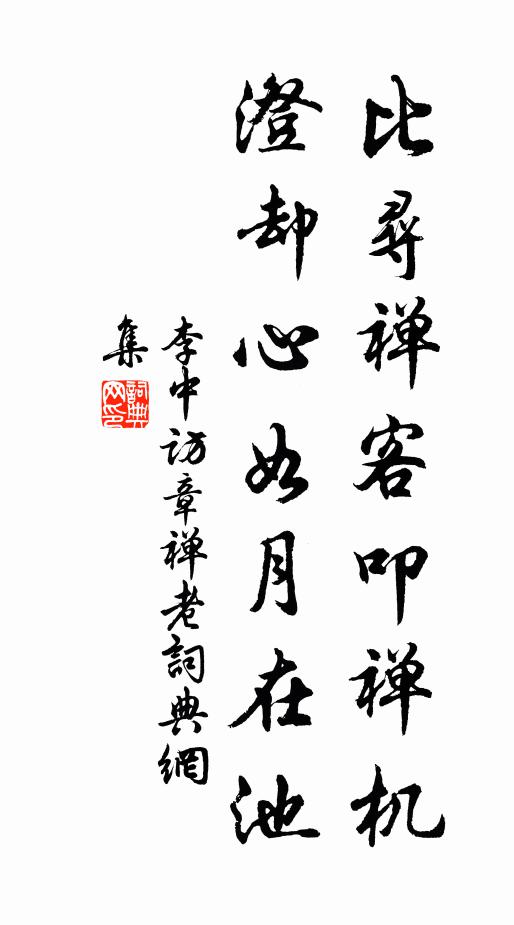 比尋禅客叩禅机
澄却心如月在池
李中访章禅老詞典網
集
詞典
网印